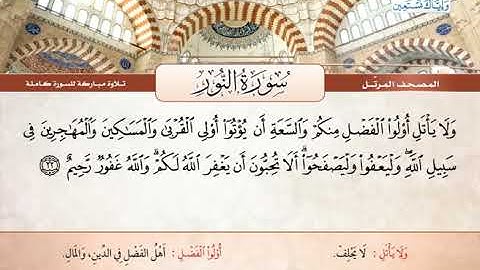 وَإِيَّاكَ نَسْتَعِينُ
المصحف المرتل
سُورَةُ النُّورِ
تلاوة مباركة للسورة كاملة
وَلَا يَأْتَلِ أُو۟لُوا۟ ٱلْفَضْلِ مِنكُمْ وَٱلسَّعَةِ أَن يُؤْتُوٓا۟ أُو۟لِى ٱلْقُرْبَىٰ وَٱلْمَسَـٰكِينَ وَٱلْمُهَـٰجِرِينَ فِى
سَبِيلِ ٱللَّهِ ۖ وَلْيَعْفُوا۟ وَلْيَصْفَحُوٓا۟ ۗ أَلَا تُحِبُّونَ أَن يَغْفِرَ ٱللَّهُ لَكُمْ ۗ وَٱللَّهُ غَفُورٌ رَّحِيمٌ ٢٢
وَلَا يَأْتَلِ : لَا يَحْلِفْ. أُوْلُوا الْفَضْلِ : أَهْلُ الفَضْلِ فِي الدِّينِ، وَالمَالِ.